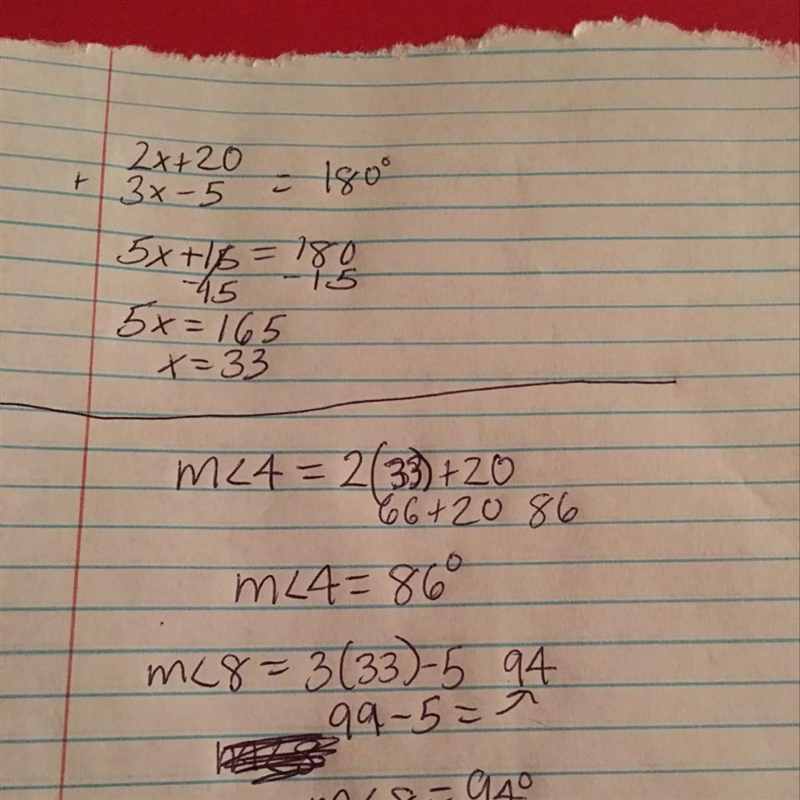 2x+20
+ 3x-5 = 180°
5x+15 = 180
-15 -15
5x = 165
x = 33
m<4 = 2(33)+20
66+20 86
m<4 = 86°
m<8 = 3(33)-5 94
99-5 =
m<8 = 94°